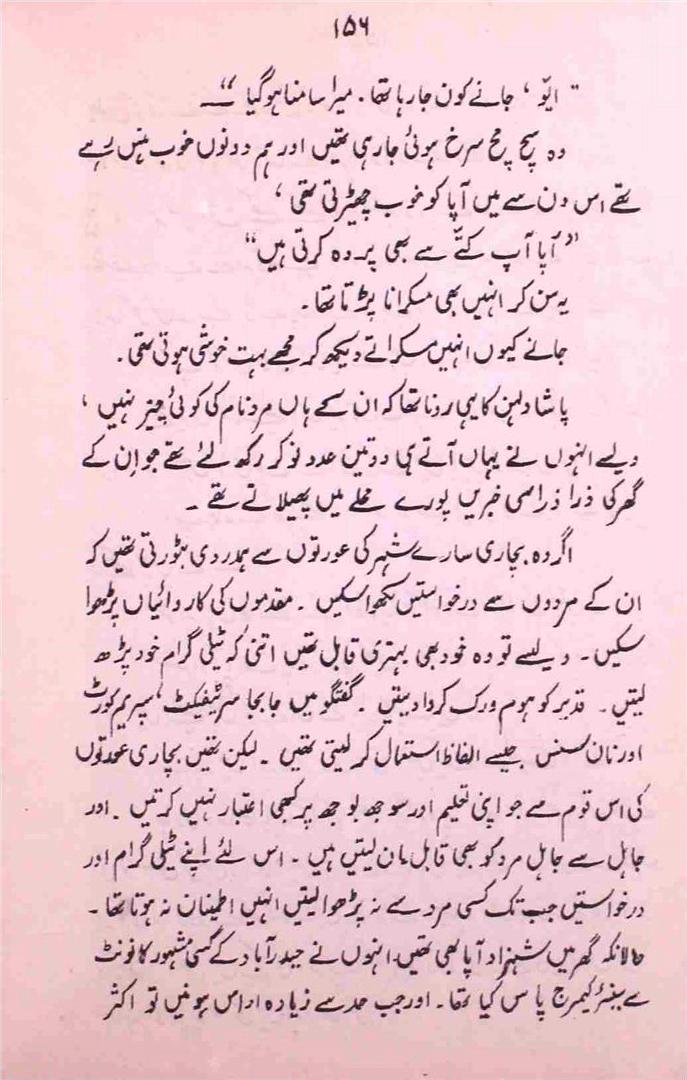 ۱۵۶
" ایوّ، جانے کون جا رہا تھا. میرا سامنا ہو گیا "ــ
وہ سچ مچ سرخ ہوئی جا رہی تھیں اور ہم دونوں خوب ہنس رہے
تھے اس دن سے میں آپا کو خوب چھیڑتی تھی،
"آپا آپ کتّے سے بھی پردہ کرتی ہیں"
یہ سن کر انہیں بھی مسکرانا پڑتا تھا۔
جانے کیوں انہیں مسکراتے دیکھ کر مجھے بہت خوشی ہوتی تھی۔
پاشا دلہن کا یہی رونا تھا کہ ان کے ہاں مرد نام کی کوئی چیز نہیں،
ویسے انہوں نے یہاں آتے ہی دو تین عدد نوکر رکھ لئے تھے جو اِن کے
گھر کی ذرا ذرا سی خبریں پورے محلے میں پھیلاتے تھے۔
اگر وہ بچاری سارے شہر کی عورتوں سے ہمدردی بٹورتی تھیں کہ
ان کے مردوں سے درخواستیں لکھوا سکیں۔ مقدموں کی کاروائیاں پڑھوا
سکیں۔ ویسے تو وہ خود بھی بہتری قابل تھیں اتنی کہ ٹیلی گرام خود پڑھ
لیتیں۔ قدیر کو ہوم ورک کروا دیتیں۔ گفتگو میں جا بجا سرٹیفکیٹ، سپریم کورٹ
اور نان سنس جیسے الفاظ استعمال کر لیتی تھیں۔ لیکن تھیں بچاری عورتوں
کی اس قوم سے جو اپنی تعلیم اور سوجھ بوجھ پر کبھی اعتبار نہیں کرتیں۔ اور
جاہل سے جاہل مرد کو بھی قابل مان لیتیں ہیں۔ اس لئے اپنے ٹیلی گرام اور
درخواستیں جب تک کسی مرد سے نہ پڑھوا لیتیں انہیں اطینان نہ ہوتا تھا۔
حالانکہ گھر میں شہزاد آپا بھی تھیں۔ انہوں نے حیدرآباد کے کسی مشہور کانونٹ
سے سینئر کیمبرج پاس کیا تھا۔ اور جب حد سے زیادہ اداس ہوتیں تو اکثر